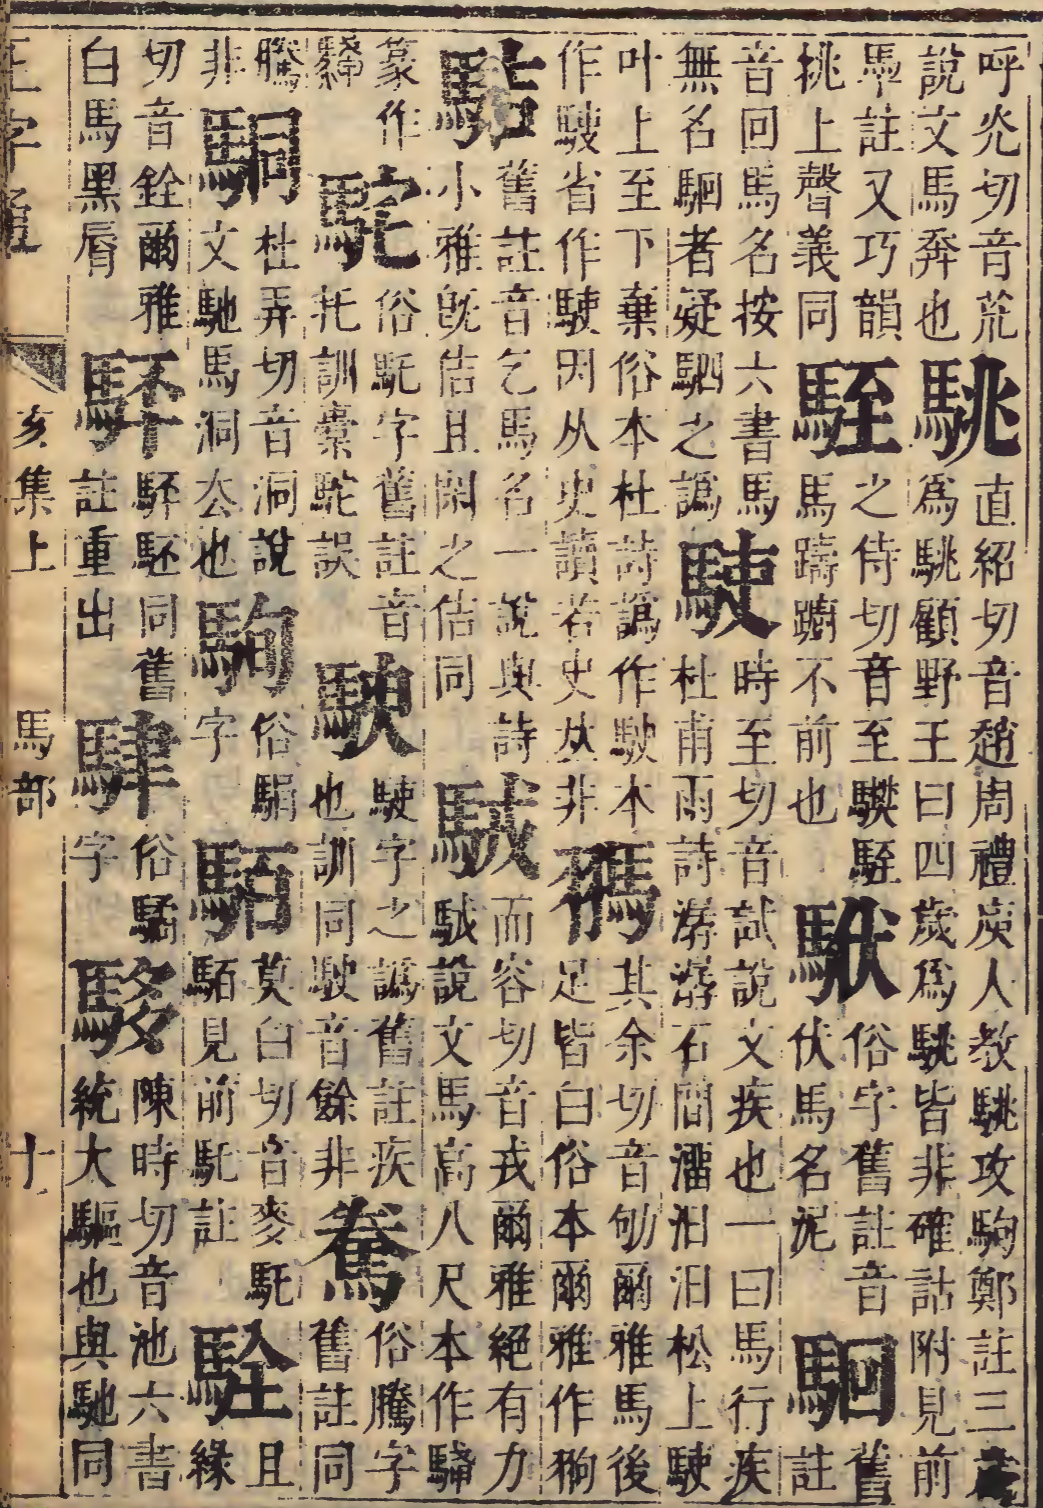 呼光切音荒說文馬奔也 駣 直紹切音趙周禮庾人教駣攻駒鄭註三歲爲駣顧野王曰四歲爲駣皆非確詁附見前
馽註又巧韻挑上聲義同 駤 之侍切音至驋駤馬躊躇不前也 俗字舊註音伏馬名泥 舊註
音回馬名按六書馬無名者疑駟之譌 駛 時至切音試說文疾也一曰馬行疾杜甫雨詩潺潺石間溜汩汩松上駛
叶上至下棄俗本杜詩譌作駃本作駛省作駛因从史讀若史𠀤非 其余切音劬爾雅馬後足皆白俗本爾雅作狗
舊註音乞馬名一說與詩小雅旣佶且閑之佶同 駥 而容切音戎爾雅絕有力駥說文馬高八尺本作
篆作 駝 俗馲字舊註音托訓橐駝誤 駚 駛字之譌舊註疾也訓同駛音餘非 俗騰字舊註同
騰非 駧 杜弄切音洞說文馳馬洞去也 駨 俗字 莫白切音麥馲見前馲註 駩 且緣
切音銓爾雅白馬黑脣 駓 同舊註重出 俗驕字 陳時切音池六書統大驅也與馳同
正字通 亥集上 馬部 十